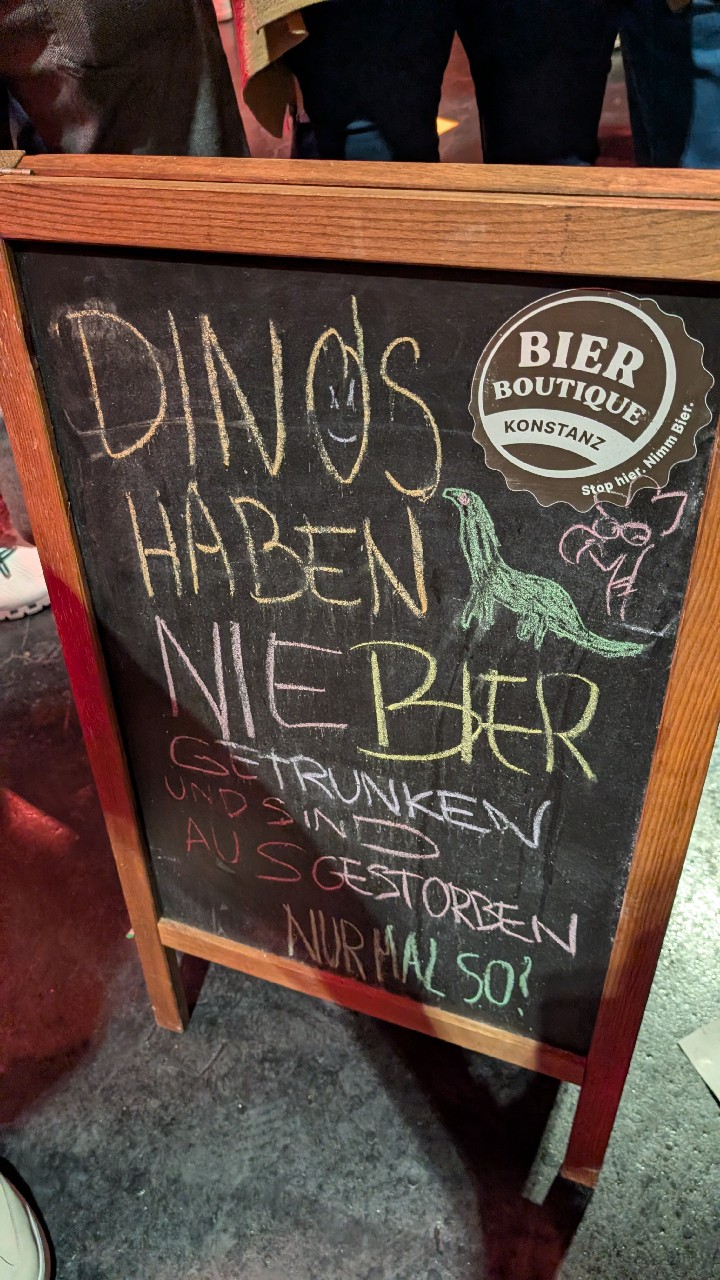 DINOS
HABEN
NIE BIER
GETRUNKEN
UND SIND
AUSGESTORBEN
NUR MAL SO!
BIER
BOUTIQUE
KONSTANZ
Stop hier. Nimm Bier.